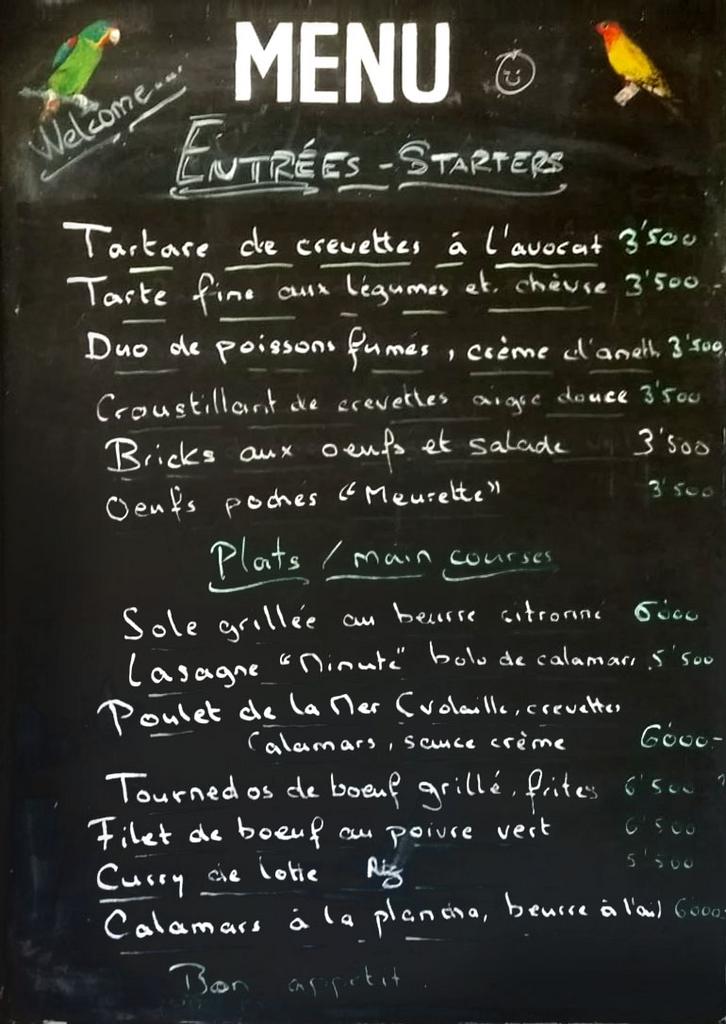 MENU
Welcome....
ENTRÉES - STARTERS
Tartare de crevettes à l'avocat 3'500
Tarte fine aux légumes et chèvre 3'500.-
Duo de poissons fumés, crème d'aneth 3'500
Croustillant de crevettes aigre douce 3'500
Bricks aux oeufs et salade 3'500
Oeufs pochés "Meurette" 3'500
Plats / main courses
Sole grillée au beurre citronné 6000
Lasagne "Minute" bolo de calamars 5'500
Poulet de la Mer (volaille, crevettes
Calamars, sauce crème 6000-
Tournedos de boeuf grillé, frites 6'500
Filet de boeuf au poivre vert 6'500
Curry de lotte Riz 5'500
Calamars à la plancha, beurre à l'ail 6000-
Bon appétit.